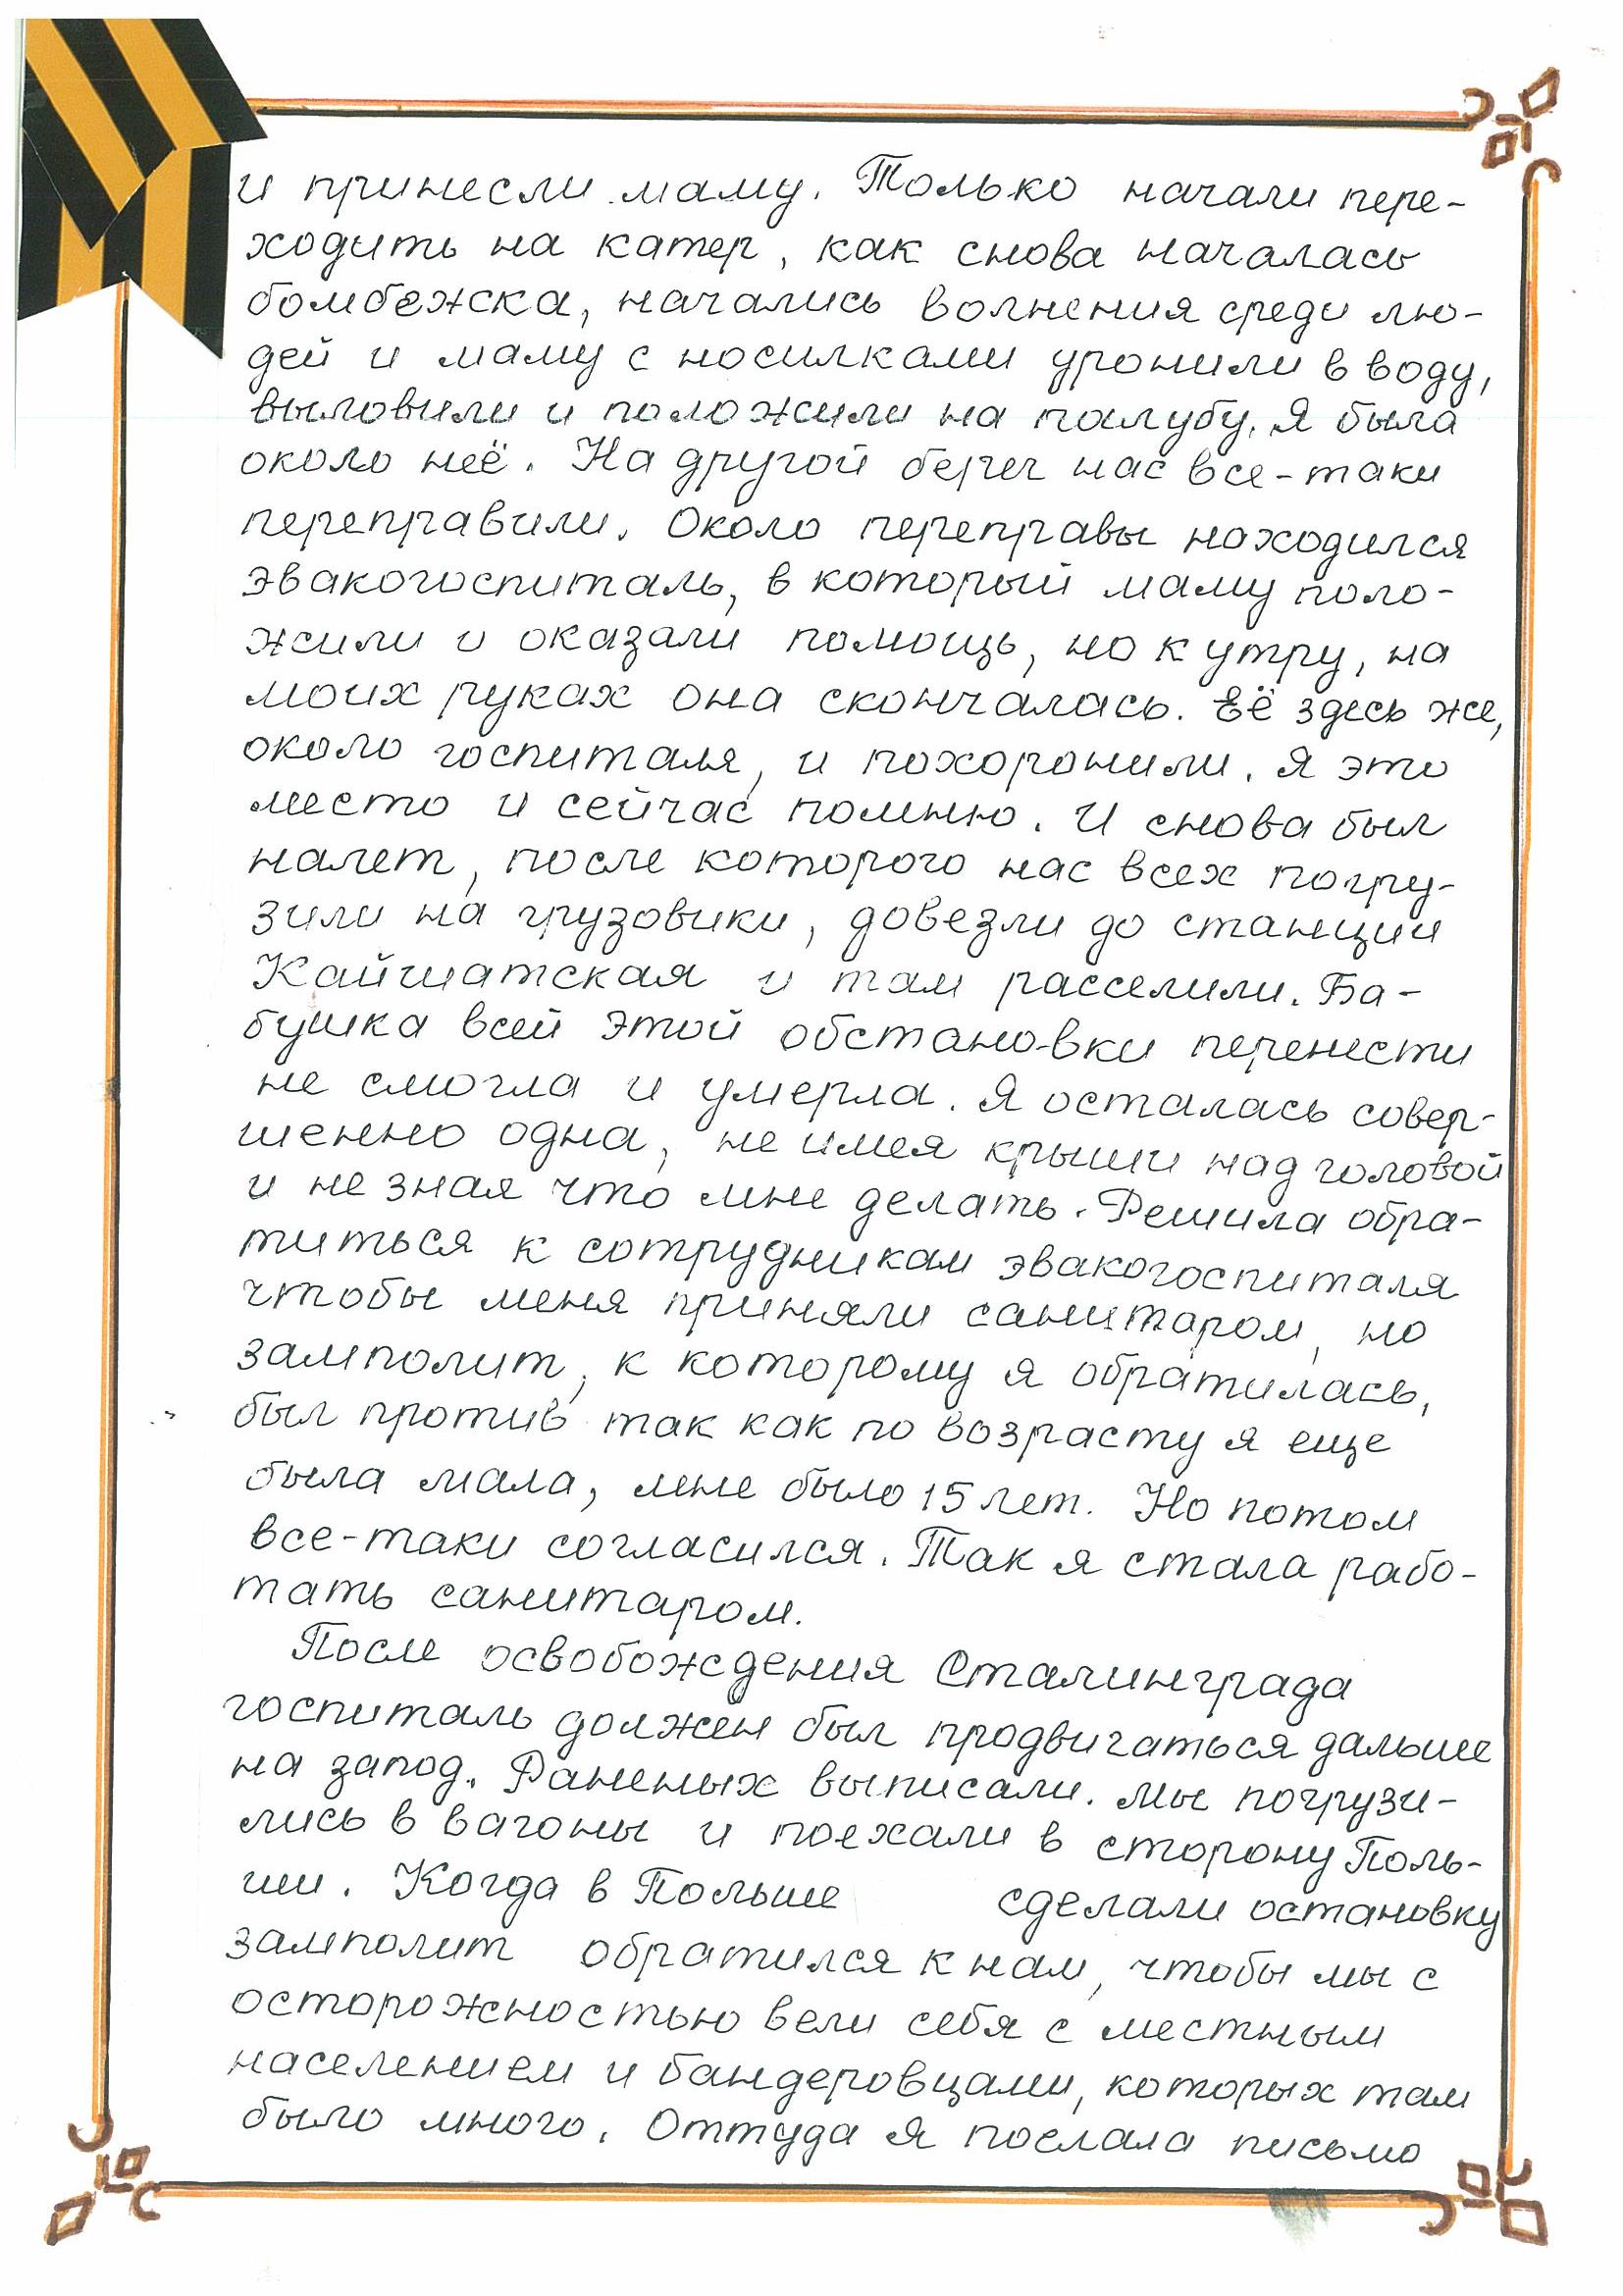 и принесли маму. Только начали пере-
ходить на катер, как снова началась
бомбежка, начались волнения среди лю-
дей и маму с носилками уронили в воду,
выловили и положили на палубу. Я была
около неё. На другой берег нас все-таки
переправили. Около переправы находился
эвакогоспиталь, в который маму поло-
жили и оказали помощь, но к утру, на
моих руках она скончалась. Её здесь же,
около госпиталя, и похоронили. Я это
место и сейчас помню. И снова был
налет, после которого нас всех погру-
зили на грузовики, довезли до станции
Кайшатская и там расселили. Ба-
бушка всей этой обстановки перенести
не смогла и умерла. Я осталась совер-
шенно одна, не имея крыши над головой
и не зная что мне делать. Решила обра-
титься к сотрудникам эвакогоспиталя
чтобы меня приняли санитаром, но
замполит, к которому я обратилась,
был против так как по возрасту я еще
была мала, мне было 15 лет. Но потом
все-таки согласился. Так я стала рабо-
тать санитаром.
После освобождения Сталинграда
госпиталь должен был продвигаться дальше
на запад. Раненых выписали. Мы погрузи-
лись в вагоны и поехали в сторону Поль-
ши. Когда в Польше сделали остановку
замполит обратился к нам, чтобы мы с
осторожностью вели себя с местным
населением и бандеровцами, которых там
было много. Оттуда я послала письмо